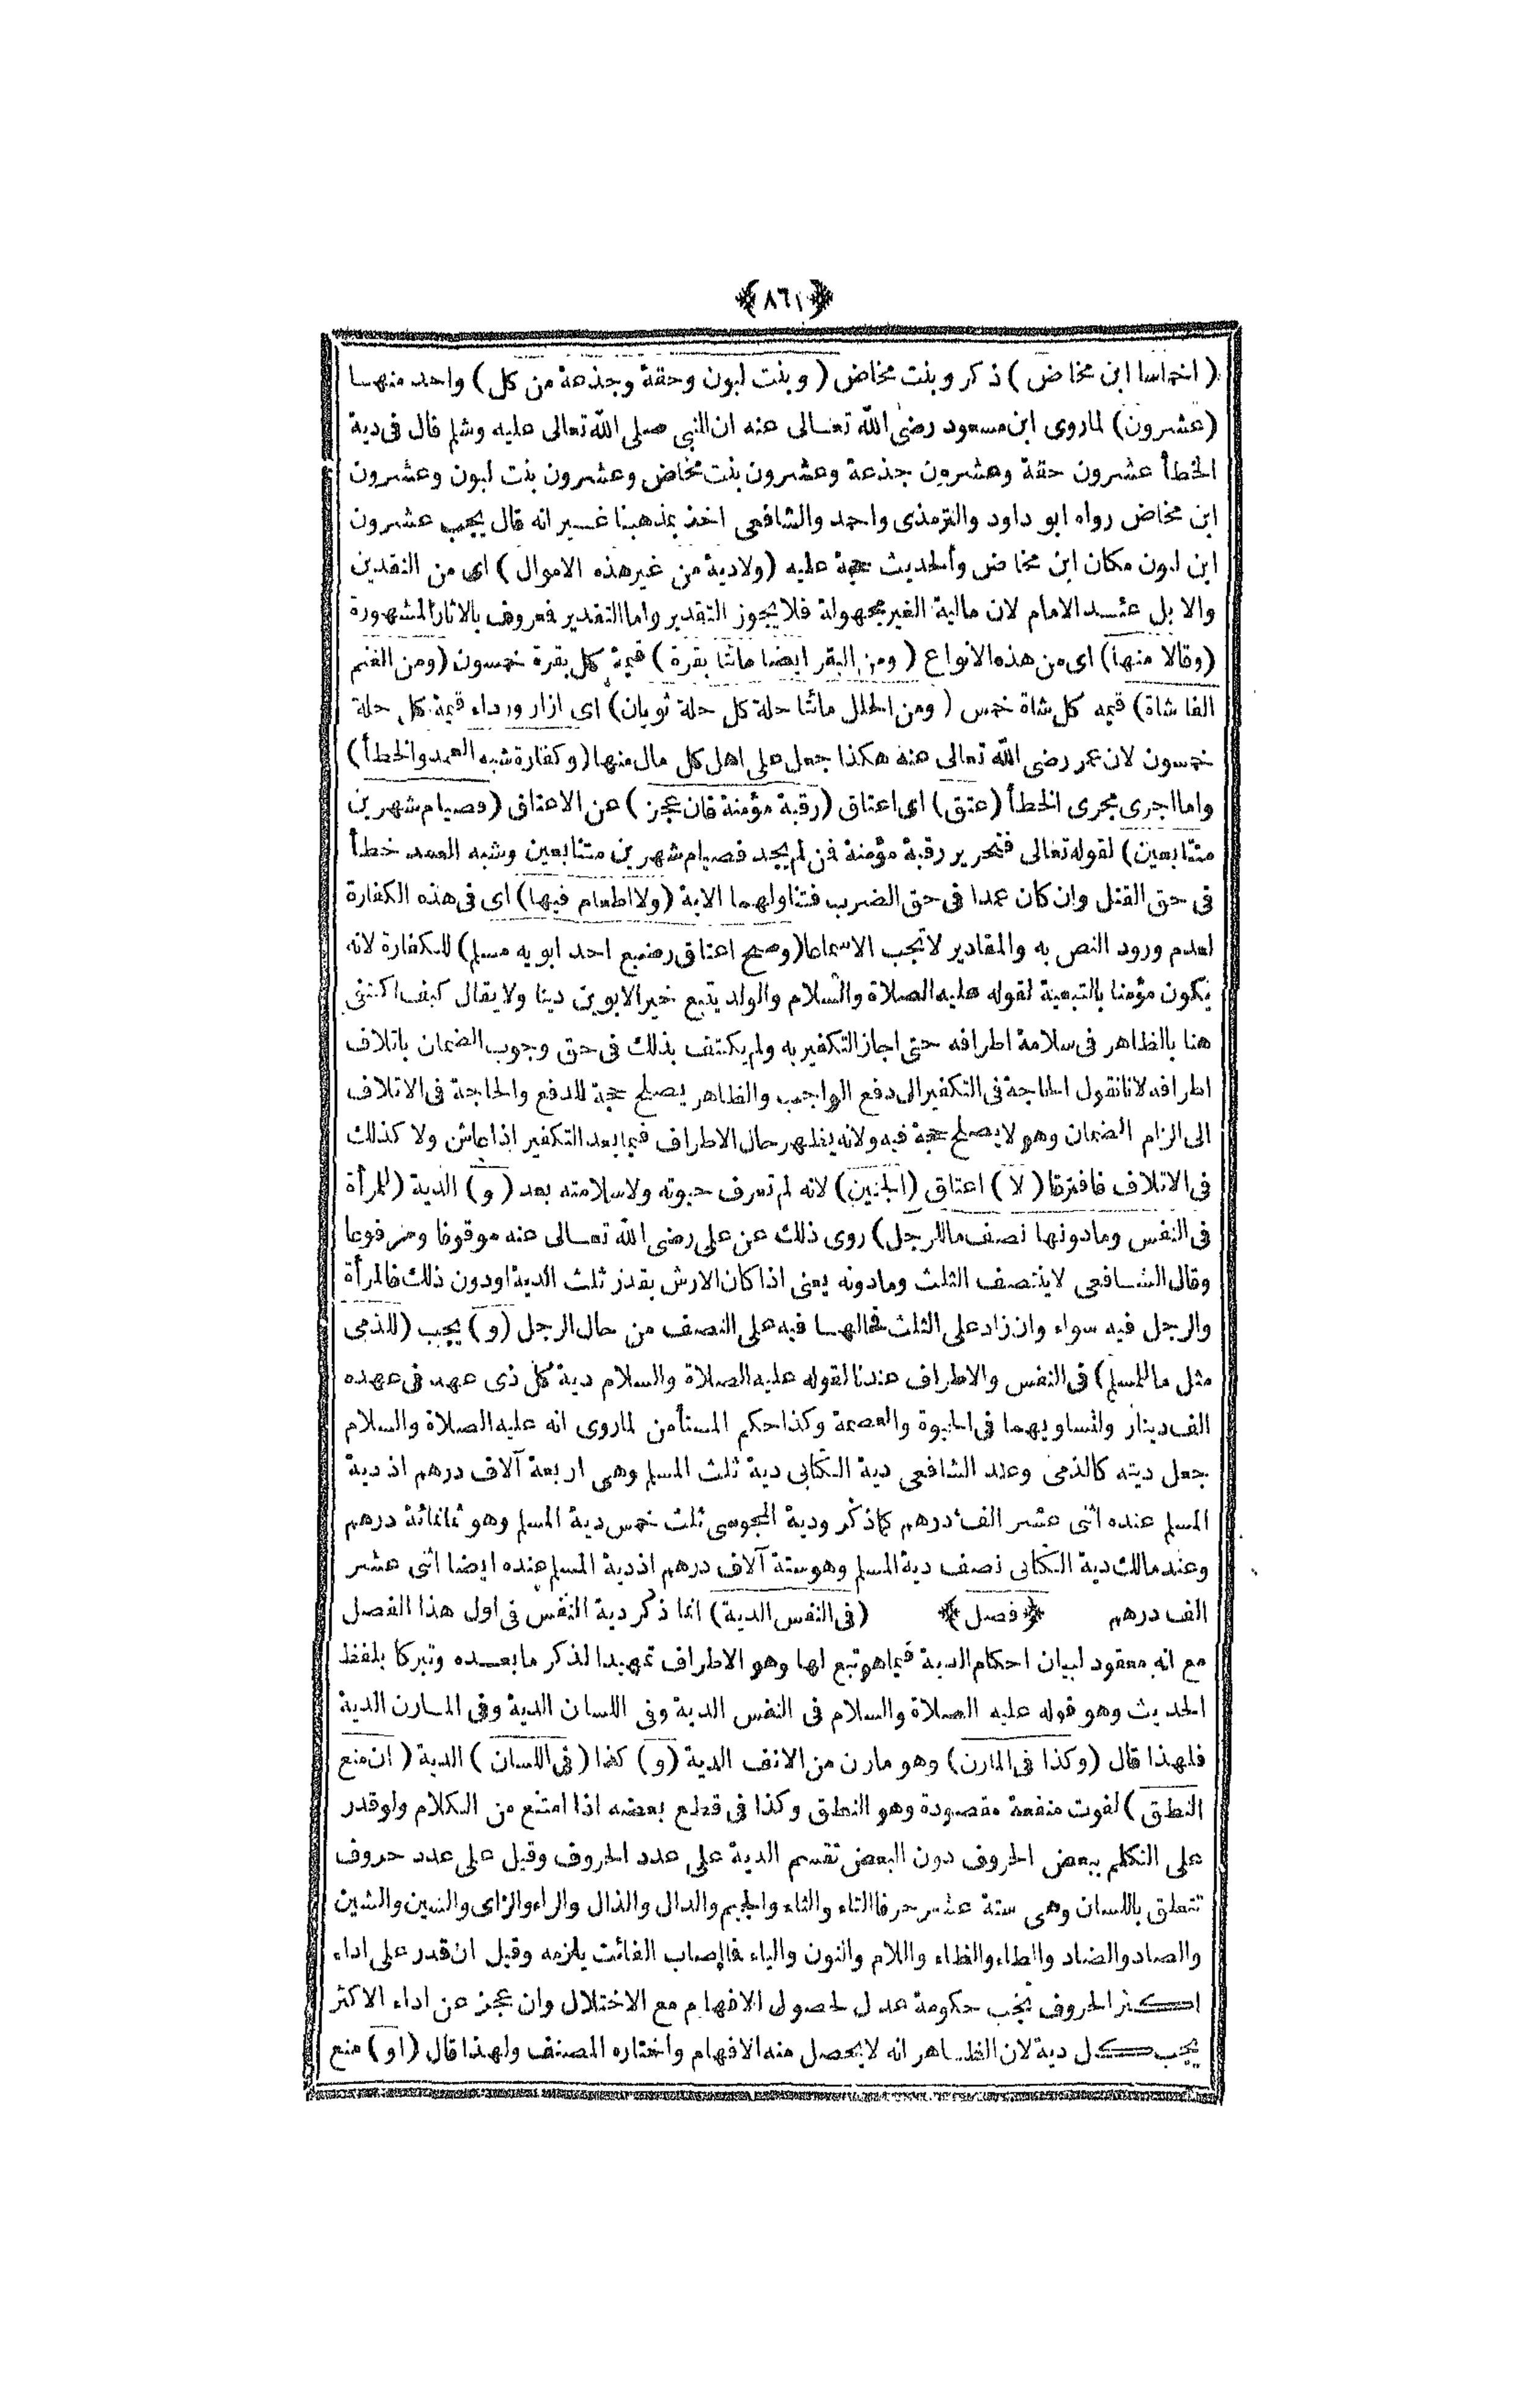 ﴿٨٦١﴾
( اخماسا ابن مخاض ) ذكر وبنت مخاض ( وبنت لبون وحقة وجذعة من كل ) واحد منهـا
(عشرون) لماروى ابن مسعود رضى الله تعـالى عنه ان النبى صلى الله تعالى عليه وسلم قال فى دية
الخطأ عشرون حقة وعشرون جذعة وعشرون بنت مخاض وعشرون بنت لبون وعشرون
ابن مخاض رواه ابو داود والترمذى واحمد والشافعى اخذ بمذهبنا غـير انه قال يجب عشرون
ابن لبون مكان ابن مخاض والحديث حجة عليه (ولادية من غير هذه الاموال ) اى من النقدين
والابل عنـد الامام لان مالية الغير مجهولة فلا يجوز التقدير واما التقدير فعروف بالاثار المشهورة
(وقالا منها) اى من هذه الانواع ( ومن البقر ايضا مائتا بقرة ) قيمة كل بقرة خمسون (ومن الغنم
الفا شاة) قيمه كل شاة خمس ( ومن الحلل مائتا حلة كل حلة ثوبان) اى ازار ورداء قيمة كل حلة
خمسون لان عمر رضى الله تعالى عنه هكذا جعل على اهل كل مال منها (وكفارة شبه العمد والخطأ )
واما اجرى مجرى الخطأ (عتق) اى اعتاق (رقبة مؤمنة فان عجز ) عن الاعتاق (فصيام شهرين
متتابعين) لقوله تعالى فتحرير رقبة مؤمنة فمن لم يجد فصيام شهرين متتابعين وشبه العمد خطأ
فى حق القتل وان كان عمدا فى حق الضرب فتناولهما الاية (ولا اطعام فيها) اى فى هذه الكفارة
لعدم ورود النص به والمقادير لا تجب الا سماعا (وصح اعتاق رضيع احد ابويه مسلم) للكفارة لانه
يكون مؤمنا بالتبعية لقوله عليه الصلاة والسلام والولد يتبع خير الابوين دينا ولا يقال كيف اكتفى
هنا بالظاهر فى سلامة اطرافه حتى اجاز التكفير به ولم يكتف بذلك فى حق وجوب الضمان باتلاف
اطرافه لانا نقول الحاجة فى التكفير الى دفع الواجب والظاهر يصلح حجة للدفع والحاجة فى الاتلاف
الى الزام الضمان وهو لا يصلح حجة فيه ولانه يظهر حال الاطراف فيما بعد التكفير اذا عاش ولا كذلك
فى الاتلاف فافترقا ( لا ) اعتاق (الجنين) لانه لم تعرف حيوته ولا سلامته بعد ( و ) الدية (للمرأة
فى النفس ومادونها نصف ما للرجل) روى ذلك عن على رضى الله تعـالى عنه موقوفا ومرفوعا
وقال الشـافعى لا ينتصف الثلث ومادونه يعنى اذا كان الارش بقدر ثلث الدية اودون ذلك فالمرأة
والرجل فيه سواء وان زاد على الثلث فحالهـا فيه على النصف من حال الرجل (و) يجب (للذمى
مثل ما للمسلم) فى النفس والاطراف عندنا لقوله عليه الصلاة والسلام دية كل ذى عهد فى عهده
الف دينار ولتساويهما فى الحيوة والعصمة وكذا حكم المستأمن لماروى انه عليه الصلاة والسلام
جعل ديته كالذمى وعند الشافعى دية الكتابى دية ثلث المسلم وهى اربعة آلاف درهم اذ دية
المسلم عنده اثنى عشر الف درهم كما ذكر ودية المجوسى ثلث خمس دية المسلم وهو ثمانمائة درهم
وعند مالك دية الكتابى نصف دية المسلم وهو ستة آلاف درهم اذ دية المسلم عنده ايضا اثنى عشر
الف درهم ﴿ فصل ﴾ (فى النفس الدية) انما ذكر دية النفس فى اول هذا الفصل
مع انه معقود لبيان احكام الدية فيما هو تبع لها وهو الاطراف تمهيدا لذكر ما بعـده وتبركا بلفظ
الحديث وهو قوله عليه الصلاة والسلام فى النفس الدية وفى اللسان الدية وفى المـارن الدية
فلهذا قال (وكذا فى المارن) وهو مارن من الانف الدية (و) كذا (فى اللسان ) الدية ( ان منع
النطق ) لفوت منفعة مقصودة وهو النطق وكذا فى قطع بعضه اذا امتنع من الكلام ولو قدر
على التكلم ببعض الحروف دون البعض تقسم الدية على عدد الحروف وقيل على عدد حروف
تتعلق باللسان وهى ستة عشر حرفا التاء والثاء والجيم والدال والذال والراء والزاى والسين والشين
والصاد والضاد والطاء والظاء واللام والنون والياء فما اصاب الفائت يلزمه وقيل ان قدر على اداء
اكثر الحروف يجب حكومة عدل لحصول الافهام مع الاختلال وان عجز عن اداء الاكثر
يجب كل دية لان الظـاهر انه لا يحصل منه الافهام واختاره المصنف ولهذا قال (او) منع